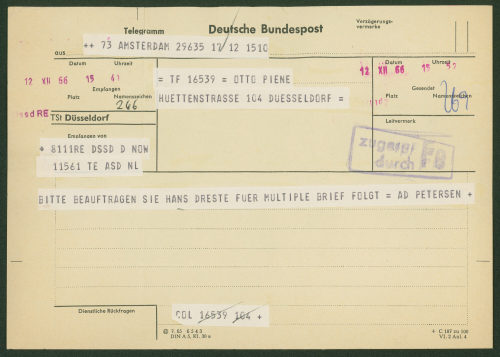 Telegramm Deutsche Bundespost Verzögerungs-
vermerke
aus ++ 73 AMSTERDAM 29635 17/12 1510
Datum Uhrzeit
12 XII 66 15 4
Empfangen
Platz Namenszeichen
266
Dssd RE
TSt Düsseldorf
= TF 16539 = OTTO PIENE
HUETTENSTRASSE 104 DUESSELDORF =
Datum Uhrzeit
12 XII 66 15
Gesendet
Platz Namenszeichen
Leitvermerk
Empfangen von
+ 8111RE DSSD D NOW
11561 TE ASD NL
zugespr
durch
BITTE BEAUFTRAGEN SIE HANS DRESTE FUER MULTIPLE BRIEF FOLGT = AD PETERSEN +
Dienstliche Rückfragen
COL 16539 104 +
DIN A 5, Kl. 30 a
+ C 187 zu 100
VI, 2 Anl. 4